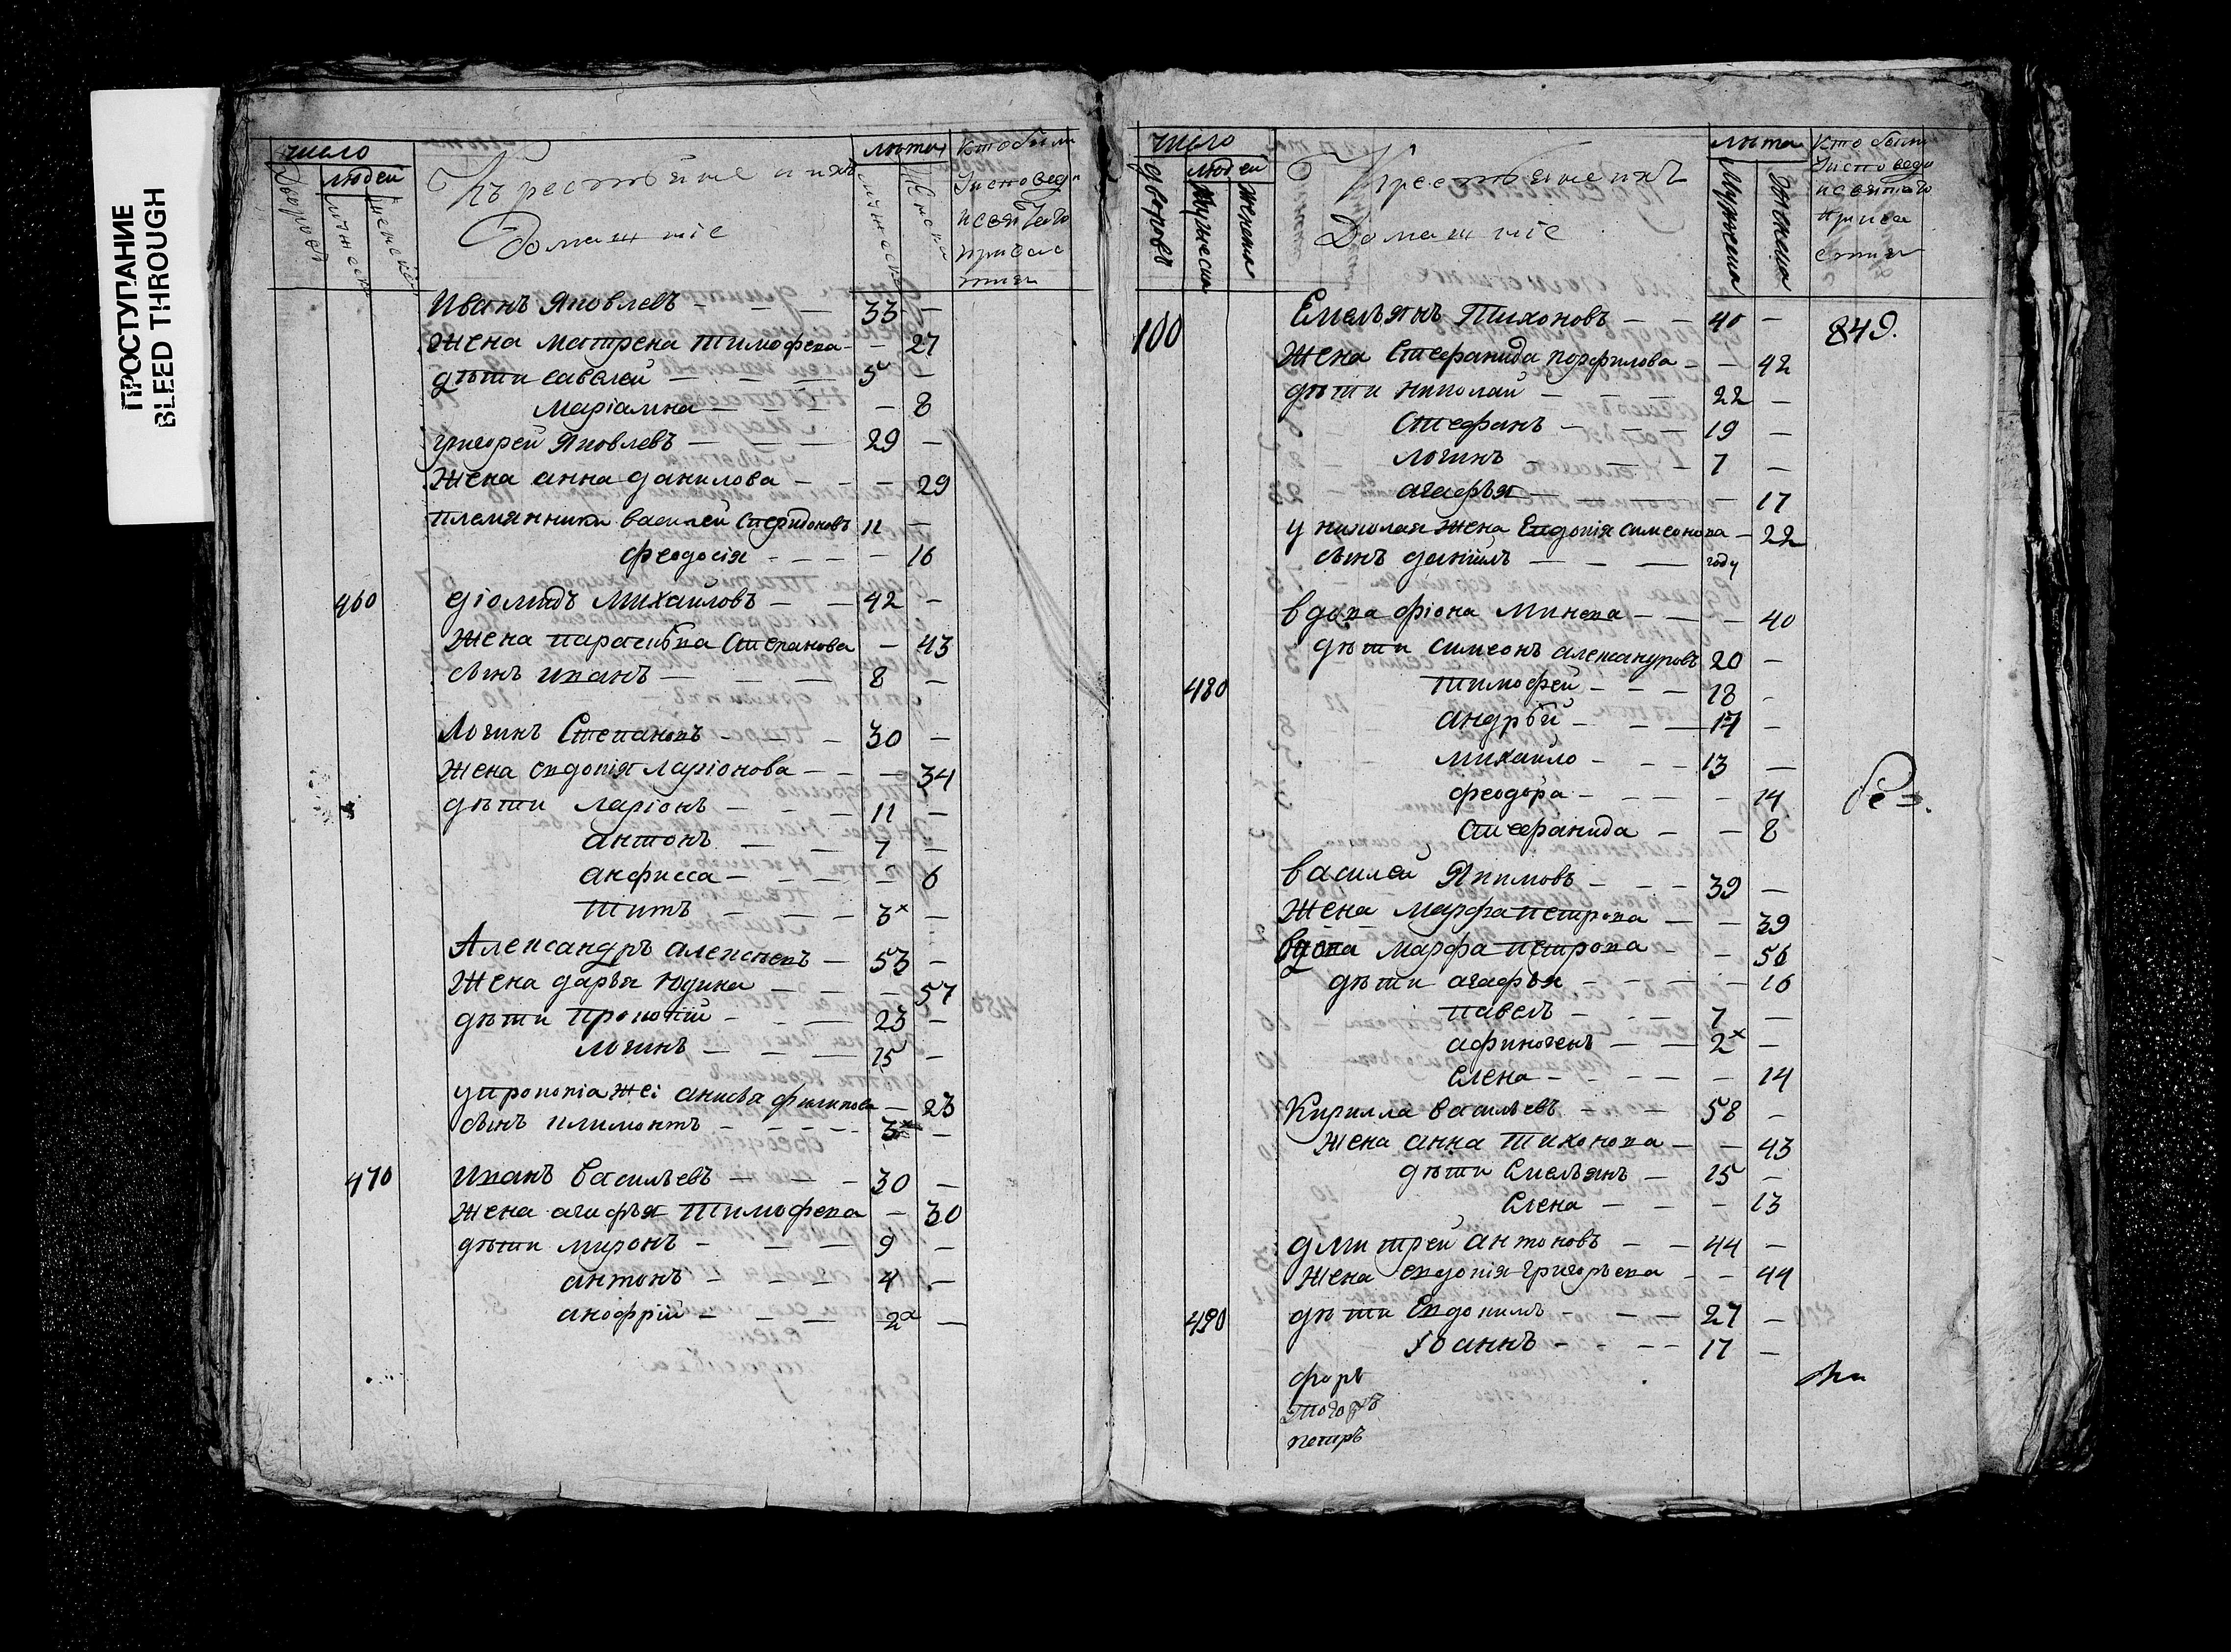 ПРОСТУПАНИЕ
BLEED THROUGH
число
людей
Крестьяне и ихъ
Домашніе
лѣта
Кто были
Иванъ Яковлевъ - - - 33 -
Жена Матрена Тимофева - - 27
дѣти савелей - - - 5 -
Маріамна - - - - 8
григорей Яковлевъ - - - 29 -
Жена анна данилова - - - 29
племянники василей Спиридоновъ 11 -
феодосія - - - - 16
460 діомидъ Михаиловъ - - 42 -
Жена параскѣва Степанова - 43
сынъ иванъ - - - 8 -
Логинъ Степановъ - - - 30 -
Жена евдокія ларіонова - - - 34
дѣти ларіонъ - - - 11 -
антонъ - - - 7 -
анфисса - - - - 6
Титъ - - - 3х -
Александръ алексѣевъ - 53 -
Жена дарья Юдина - - - 57
дѣти Прокопій - - - 23 -
логинъ - - - 15 -
у прокопіа же: анисья филипова - 23
сынъ климонтъ - - - - - 3х -
470 Иванъ васильевъ - - - 30 -
Жена агафья Тимофева - 30
дѣти миронъ - - - 9 -
антонъ - - - 4 -
анофрій - - - 2х -
число
людей
дворовъ
Мужеска
женска
Крестьяне ихъ
Домашніе
лѣта
Мужеска
женска
Кто были
100 Емельянъ Тихоновъ - - 40 - 849.
Жена Стефанида порфилова - - 42
дѣти николай - - - 22 -
Стефанъ - - - 19 -
логинъ - - - 7 -
агафья - - - - 17
у николая жена Евдокія симеонова - 22
сынъ даніилъ - - - году
вдова фіона Минева - - - 40
дѣти симеонъ александровъ 20 -
480 Тимофей - - - 18 -
андрѣй - - - 17 -
михайло - - - 13 -
феодора - - - - 14
Стефанида - - 8
василей Якимовъ - - - 39 -
Жена Марфа петрова - - 39
вдова Марфа петрова - - 56
дѣти агафья - - - - 16
павелъ - - - 7 -
афиногенъ - - 2х -
елена - - - - - 14
Кирилла васильевъ - - 58 -
Жена анна Тихонова - - 43
дѣти Емельянъ - 15 -
Елена - - - 13
дмитрей антоновъ - - 44 -
Жена евдокія григорьева - - 44
490 дѣти Евдокимъ - - - 27 -
Іоаннъ - - - - 17 -
петръ